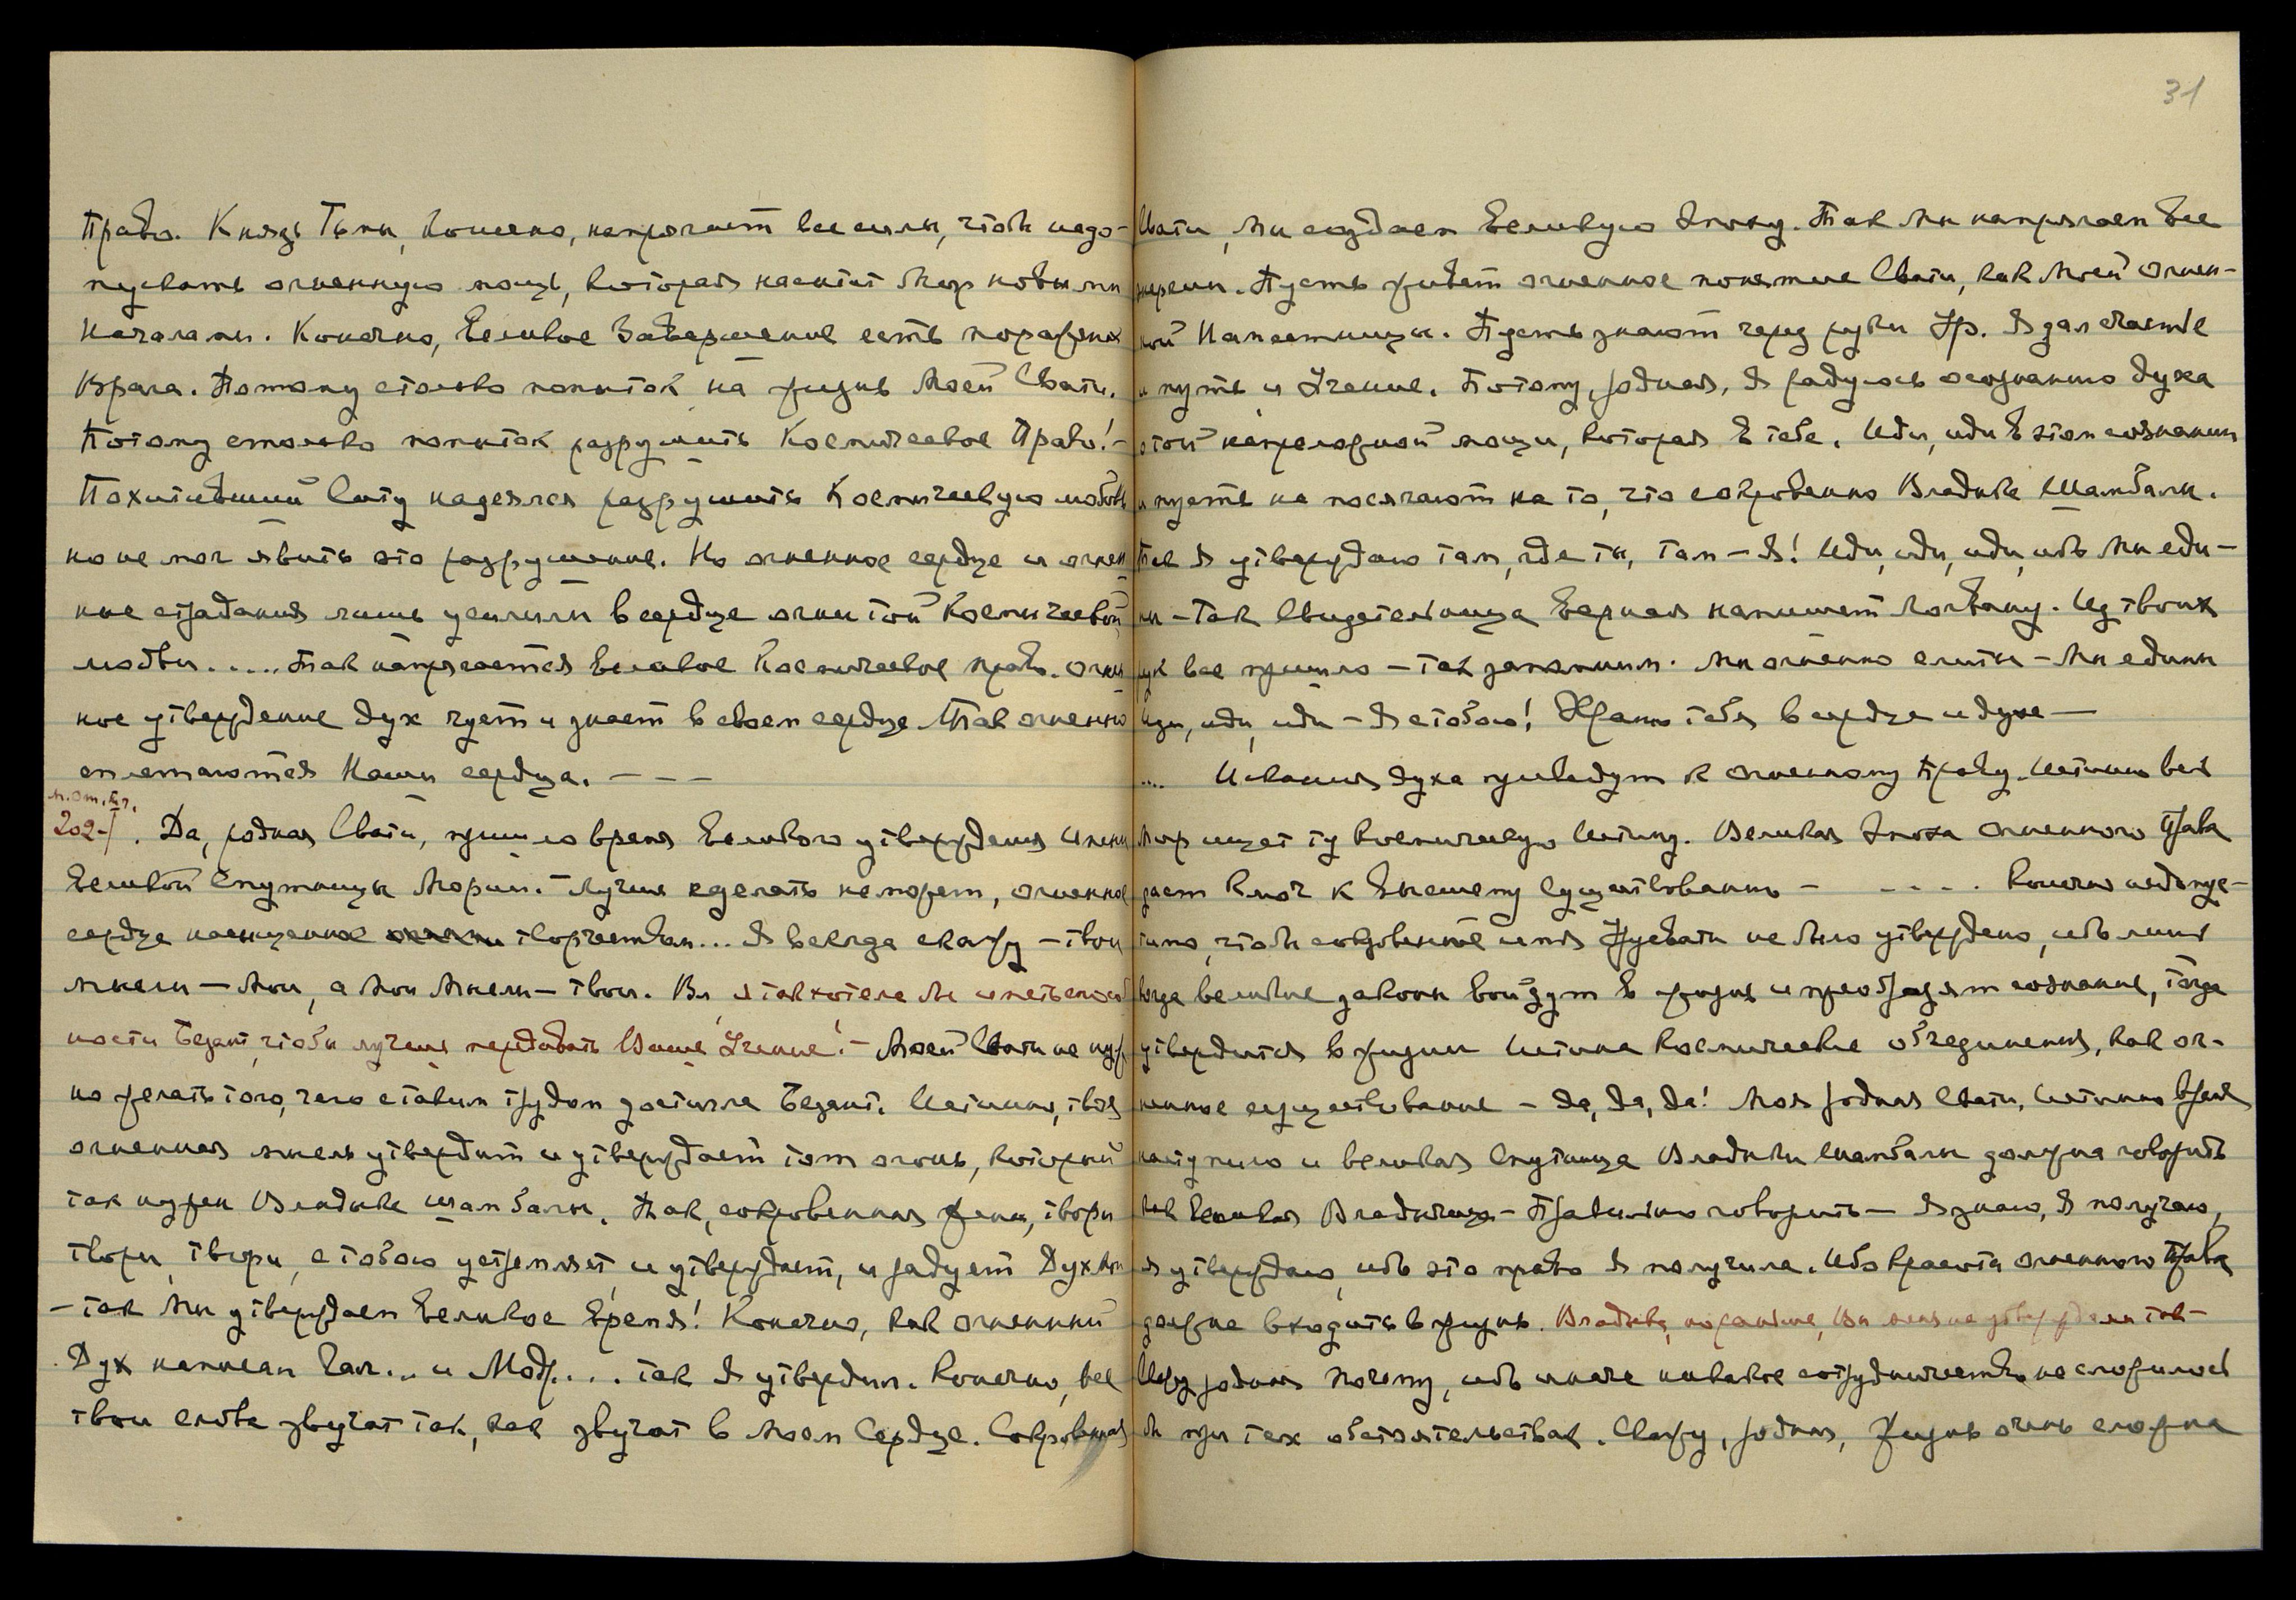 31
Право. Князь Тьмы, конечно, напрягает все силы, чтобы недо-
пускать огненную мощь, которая насытит Мир новыми
Началами. Конечно, Великое Завершение есть поражение
Врага. Потому столько попыток на жизнь Моей Свати.
Потому столько попыток разрушить Космическое Право! –
Похитивший Ситу надеялся разрушить Космическую любовь
но не мог явить это разрушение. Но огненное сердце и огнен
ные страдания лишь усилили в сердце огни той Космической
любви..... Так напрягается Великое Космическое право. Огнен
ное утверждение дух чует и знает в своем сердце. Так огненно
сплетаются Наши сердца. – – –
202-/. Да, родная Свати, пришло время Великого утверждения Имени
Великой Спутницы Мории. – Лучше сделать не может, огненное
сердце насыщенное творчеством... Я всегда скажу – твои
мысли – Мои, а Мои Мысли – твои. Вл. я так хотела бы иметь
ности Безант, чтобы лучше передавать Ваше Учение! – Моей Свати не нуж
но желать того, чего с таким трудом достигла Безант. Истинно, твоя
огненная мысль утвердит и утверждает тот огонь, который
так нужен Владыке Шамбалы. Так, сокровенная, твори
твори, твори, с тобою устремляет и утверждает, и радует Дух Мой
– так Мы утверждаем Великое Время! Конечно, как огненный
Дух написан Гал... и Модр.... так Я утвердил. Конечно, все
твои слова звучат так, как звучат в Моем Сердце. Сокровенная
Свати, Мы создаем Великую Эпоху. Так Мы напрягаем Все
меры. Пусть живет огненное понятие Свати, как Моей Огнен-
ной Наместницы. Пусть знают через руки Ур. Я дал счастье
и путь и Учение. Потому, родная, Я радуюсь осознанию духа
этой непреложной мощи, которая в тебе. Иди, иди в этом сознании
и пусть не посягают на то, что сокровенно Владыке Шамбалы.
Так Я утверждаю там, где ты, там – Я! Иди, иди, иди, ибо Мы еди-
ны – Так Свидетельница Верная напишет Хорвату. Из твоих
рук все пришло – так запомним. Мы огненно слиты – Мы едины
Иди, иди, иди – Я с тобою! Храню тебя в сердце и духе –
.... Искания духа приведут к огненному Праву. Истинно весь
Мир ищет ту космическую Истину. Великая Эпоха Огненного Права
дает ключ к Высшему Существованию – – – – –. Конечно недопус-
тимо, чтобы сокровенное имя Урусвати не было утверждено, ибо лишь
когда великие законы войдут в жизнь и преобразят сознание, тогда
утвердится в жизни Истина Космического объединения, как ог-
ненное существование – Да, Да, Да! Моя родная Свати, Истинно время
наступило и великая Спутница Владыки Шамбалы должна говорить
как Великая Владычица – Правильно говорить – Я знаю, Я получаю,
Я утверждаю, ибо это право Я получила. Ибо Красота Огненного Права
должна входить в жизнь. Владыка, но раньше, Вы меня не утверждали так –
Скажу родная почему, ибо иначе никакое сотрудничество не сложилось
бы при тех обстоятельствах. Скажу, родная, Жизнь очень сложна